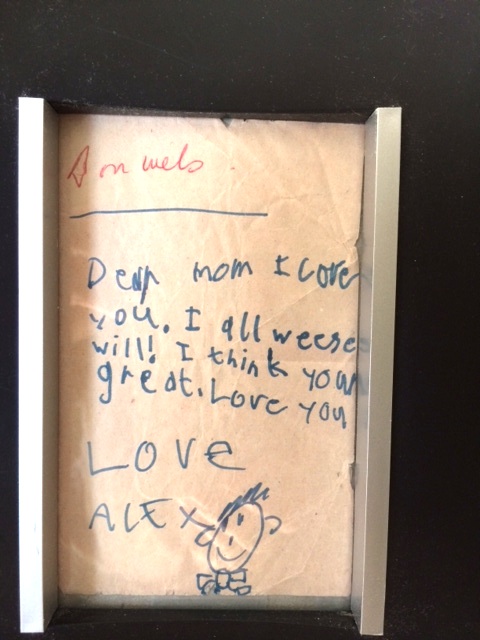 on
Dear mom I love
you. I all weese
will! I think your
great. Love you
LOVE
ALEX